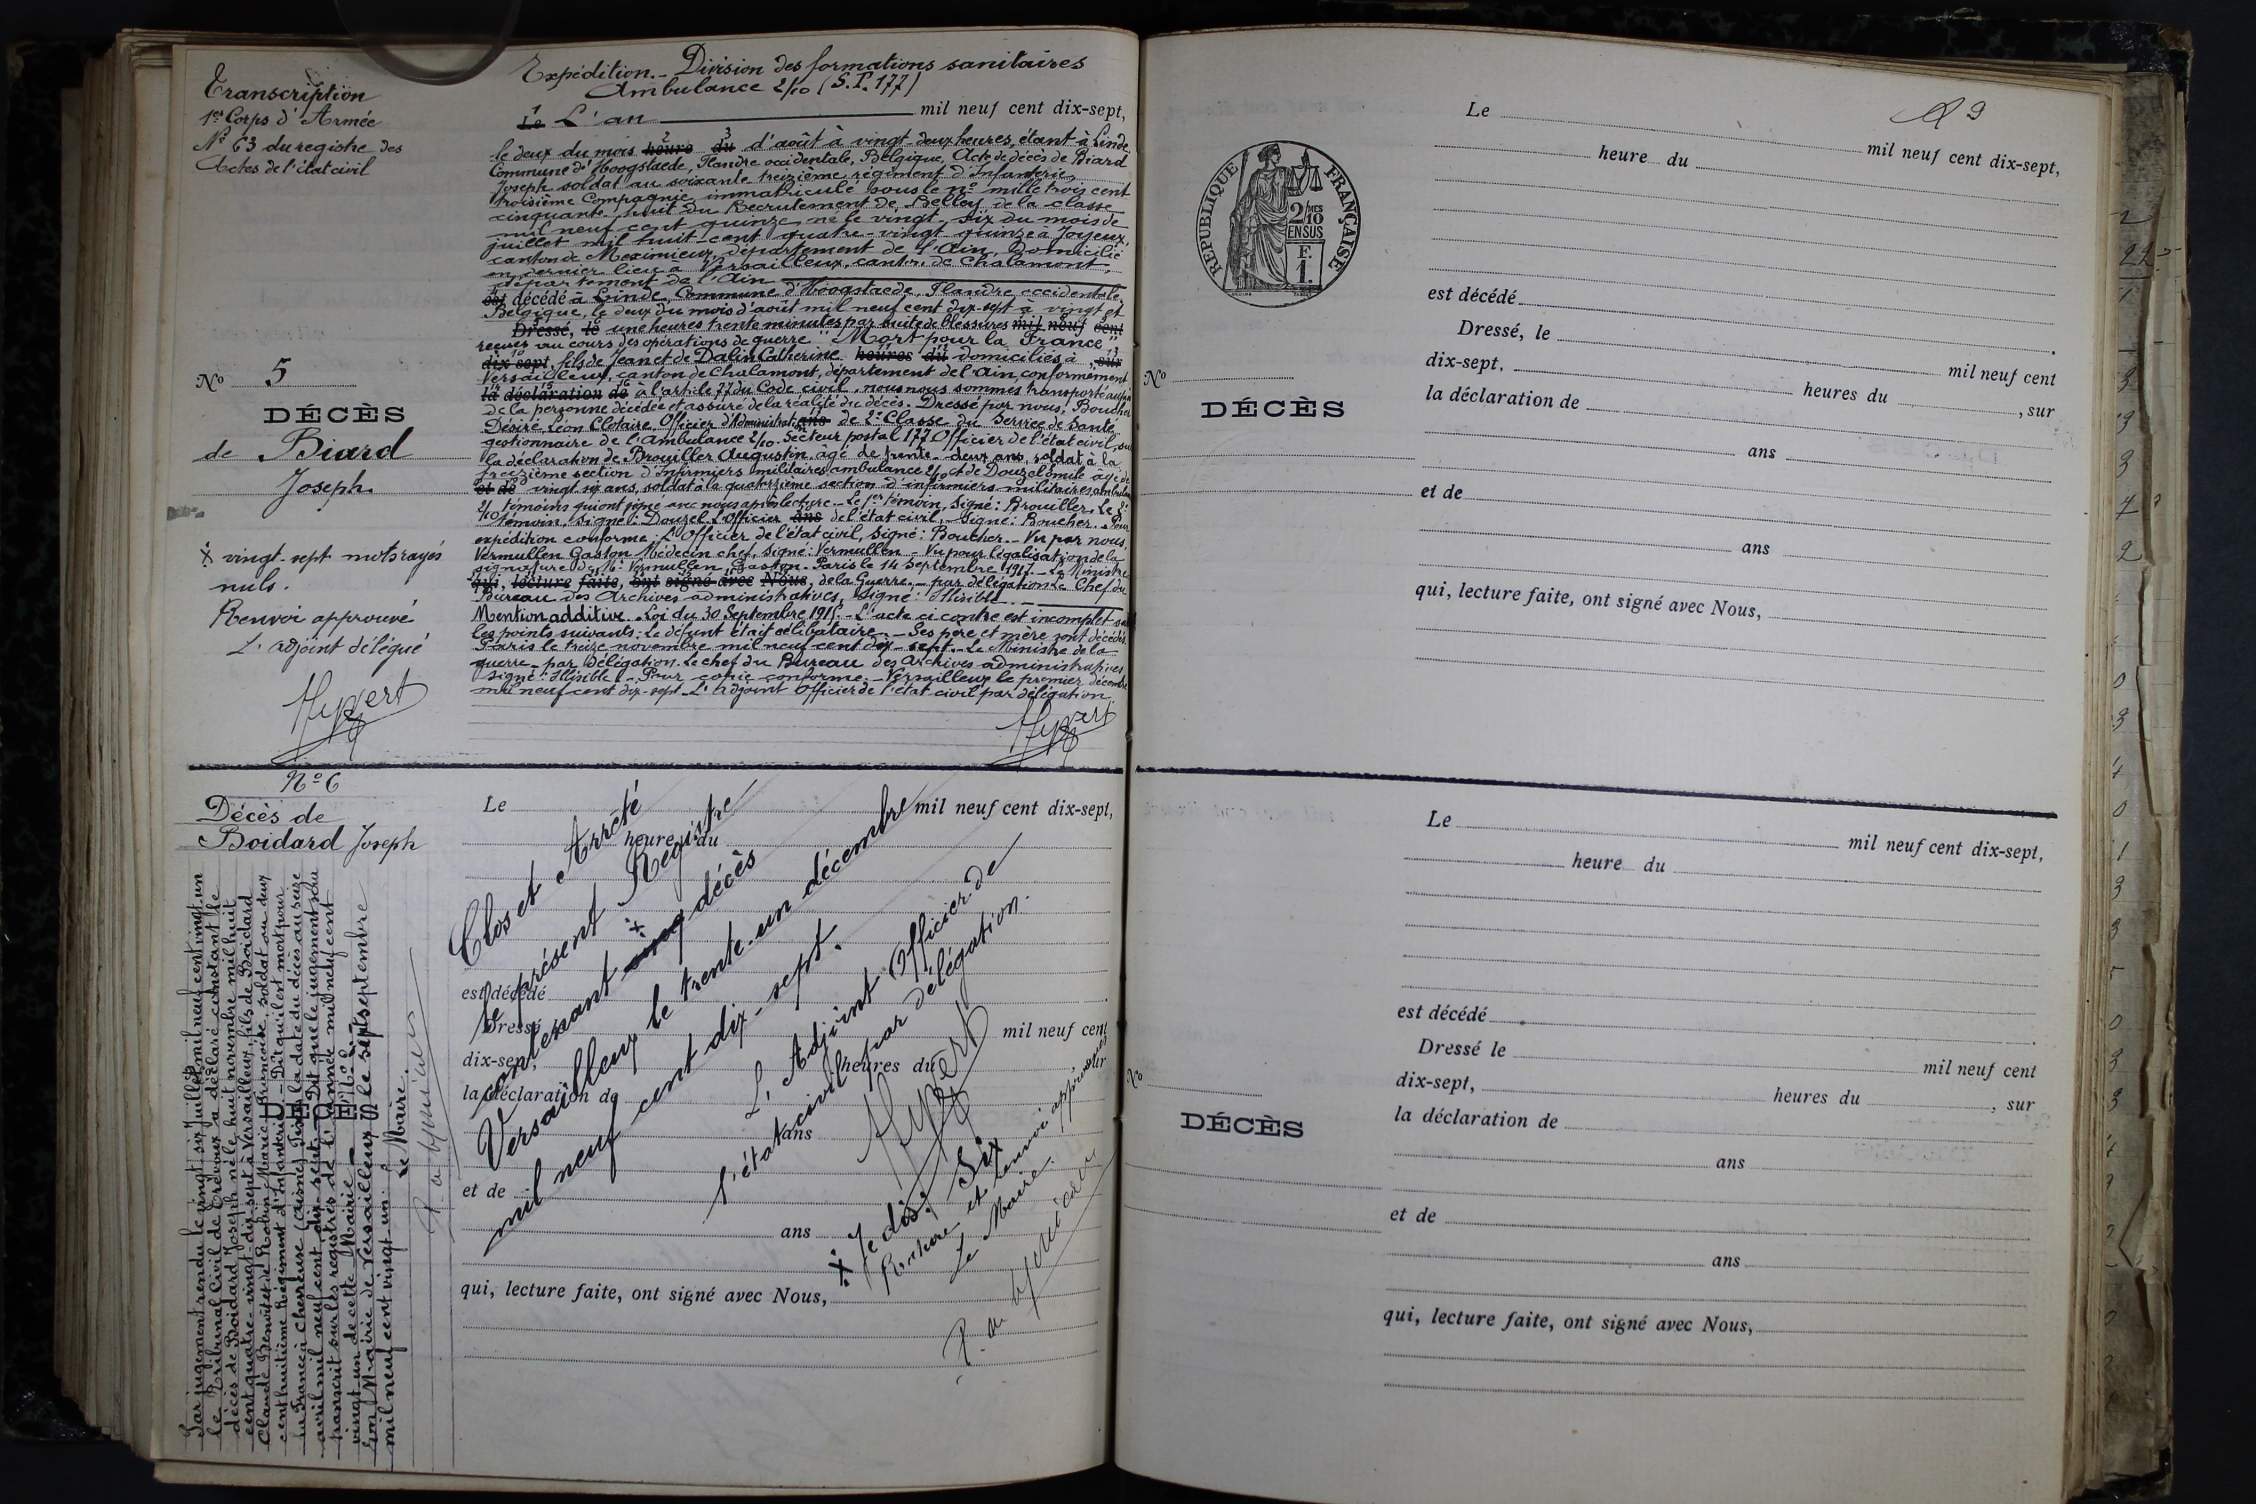 Transcription
1er Corps d'Armée
No 63 du registre des
Actes de l'état civil
No 5
DÉCÈS
de Biard
Joseph.
vingt-sept mots rayés
nuls.
Renvoi approuvé
L'adjoint délégué
Expédition. - Division des formations sanitaires
Ambulance 2/10 (S.P. 177)
Le L'an mil neuf cent dix-sept,
le deux du mois heure du d'août à vingt-deux heures, étant à Linde
Commune d'Hoogstaede, Flandre occidentale, Belgique, Acte de décès de Biard
Joseph soldat au soixante treizième régiment d'Infanterie
troisième Compagnie, immatriculé sous le no mille trois cent
cinquante huit du Recrutement de Belley, de la classe
mil neuf cent quinze, né le vingt-six du mois de
juillet mil huit-cent quatre-vingt quinze à Joyeux,
canton de Meximieux, département de l'Ain, Domicilié
en dernier lieu à Versailleux, canton de Chalamont,
département de l'Ain
est décédé à Linde, Commune d'Hoogstaede, Flandre occidentale,
Belgique, le deux du mois d'août mil neuf cent dix-sept à vingt et
Dressé, le une heures trente minutes par suite de blessures mil neuf cent
reçues au cours des opérations de guerre "Mort pour la France"
dix-sept, fils de Jean et de Dalin Catherine heures du domiciliés à , sur
Versailleux, canton de Chalamont, département de l'Ain, conformément
la déclaration de à l'article 77 du Code civil, nous nous sommes transporté auprès
de la personne décédée et assuré de la réalité du décès. Dressé par nous, Boucher
Désiré Léon Clotaire, Officier d'Administration ans de 2e Classe du Service de Santé,
gestionnaire de l'ambulance 2/10. Secteur postal 177. Officier de l'état civil, sur
la déclaration de Brouiller Augustin, agé de trente-deux ans, soldat à la
treizième section d'infirmiers militaires ambulance 2/10 et de Douzel Emile âgé de
et de vingt six ans, soldat à la quatorzième section d'infirmiers militaires ambulance
2/10 témoins qui ont signé avec nous après lecture. - Le 1er témoin, Signé: Brouiller. Le 2e
témoin, Signé: Douzel. L'Officier ans de l'état civil, Signé: Boucher. Pour
expédition conforme: L'Officier de l'état civil, Signé: Boucher. - Vu par nous,
Vermullen Gaston Médecin chef, Signé: Vermullen - Vu pour légalisation de la
signature de Mr Vermullen Gaston. Paris le 14 Septembre 1917. - Le Ministre
qui, lecture faite, ont signé avec Nous, de la Guerre. - par délégation Le Chef du
Bureau des Archives administratives, Signé: Illisible
Mention additive. Loi du 30 Septembre 1915. - L'acte ci contre est incomplet sur
les points suivants: Le défunt était célibataire. - Ses père et mère sont décédés.
Paris le treize novembre mil neuf cent dix-sept. - Le Ministre de la
guerre - par délégation. Le chef du Bureau des Archives administratives
Signé: Illisible. - Pour copie conforme. - Versailleux le premier décembre
mil neuf cent dix-sept. L'Adjoint Officier de l'état civil par délégation
No 6
Décès de
Boidard Joseph
DÉCÈS
Par jugement rendu le vingt six Juillet mil neuf cent vingt un
le Tribunal Civil de Trévoux a déclaré constant le
décès de Boidard Joseph né le huit novembre mil huit
cent quatre-vingt-dix-sept à Versailleux, fils de Boidard
Claude Benoit et de Robin Marie Brunoise, soldat au deux
cent huitième Régiment d'Infanterie. - Dit qu'il est mort pour
la France à Chevreuse (Aisne) Fixe la date du décès au seize
avril mil neuf cent dix-sept. - Dit que le jugement sera
transcrit sur les registres de l'année mil neuf cent
vingt un de cette Mairie
En Mairie de Versailleux le sept septembre
mil neuf cent vingt un.
Le Maire
Le mil neuf cent dix-sept,
heure du
est décédé
Dressé, le mil neuf cent
dix-sept, heures du , sur
la déclaration de
ans
et de
ans
qui, lecture faite, ont signé avec Nous,
Clos et Arrêté
le présent Registre
contenant cinq décès
Versailleux le trente-un décembre
mil neuf cent dix-sept.
L'Adjoint Officier de
l'état civil par délégation.
Je dis: Six
Rature et renvoi approuvés
Le Maire.
RÉPUBLIQUE FRANÇAISE
2/10 MES
EN SUS
F.
1.
Le
heure du mil neuf cent dix-sept,
est décédé
Dressé, le
dix-sept, mil neuf cent
la déclaration de heures du , sur
ans
et de
ans
qui, lecture faite, ont signé avec Nous,
No
DÉCÈS
Le
mil neuf cent dix-sept,
heure du
est décédé
Dressé le mil neuf cent
dix-sept, heures du , sur
la déclaration de
ans
et de
ans
qui, lecture faite, ont signé avec Nous,
No
DÉCÈS